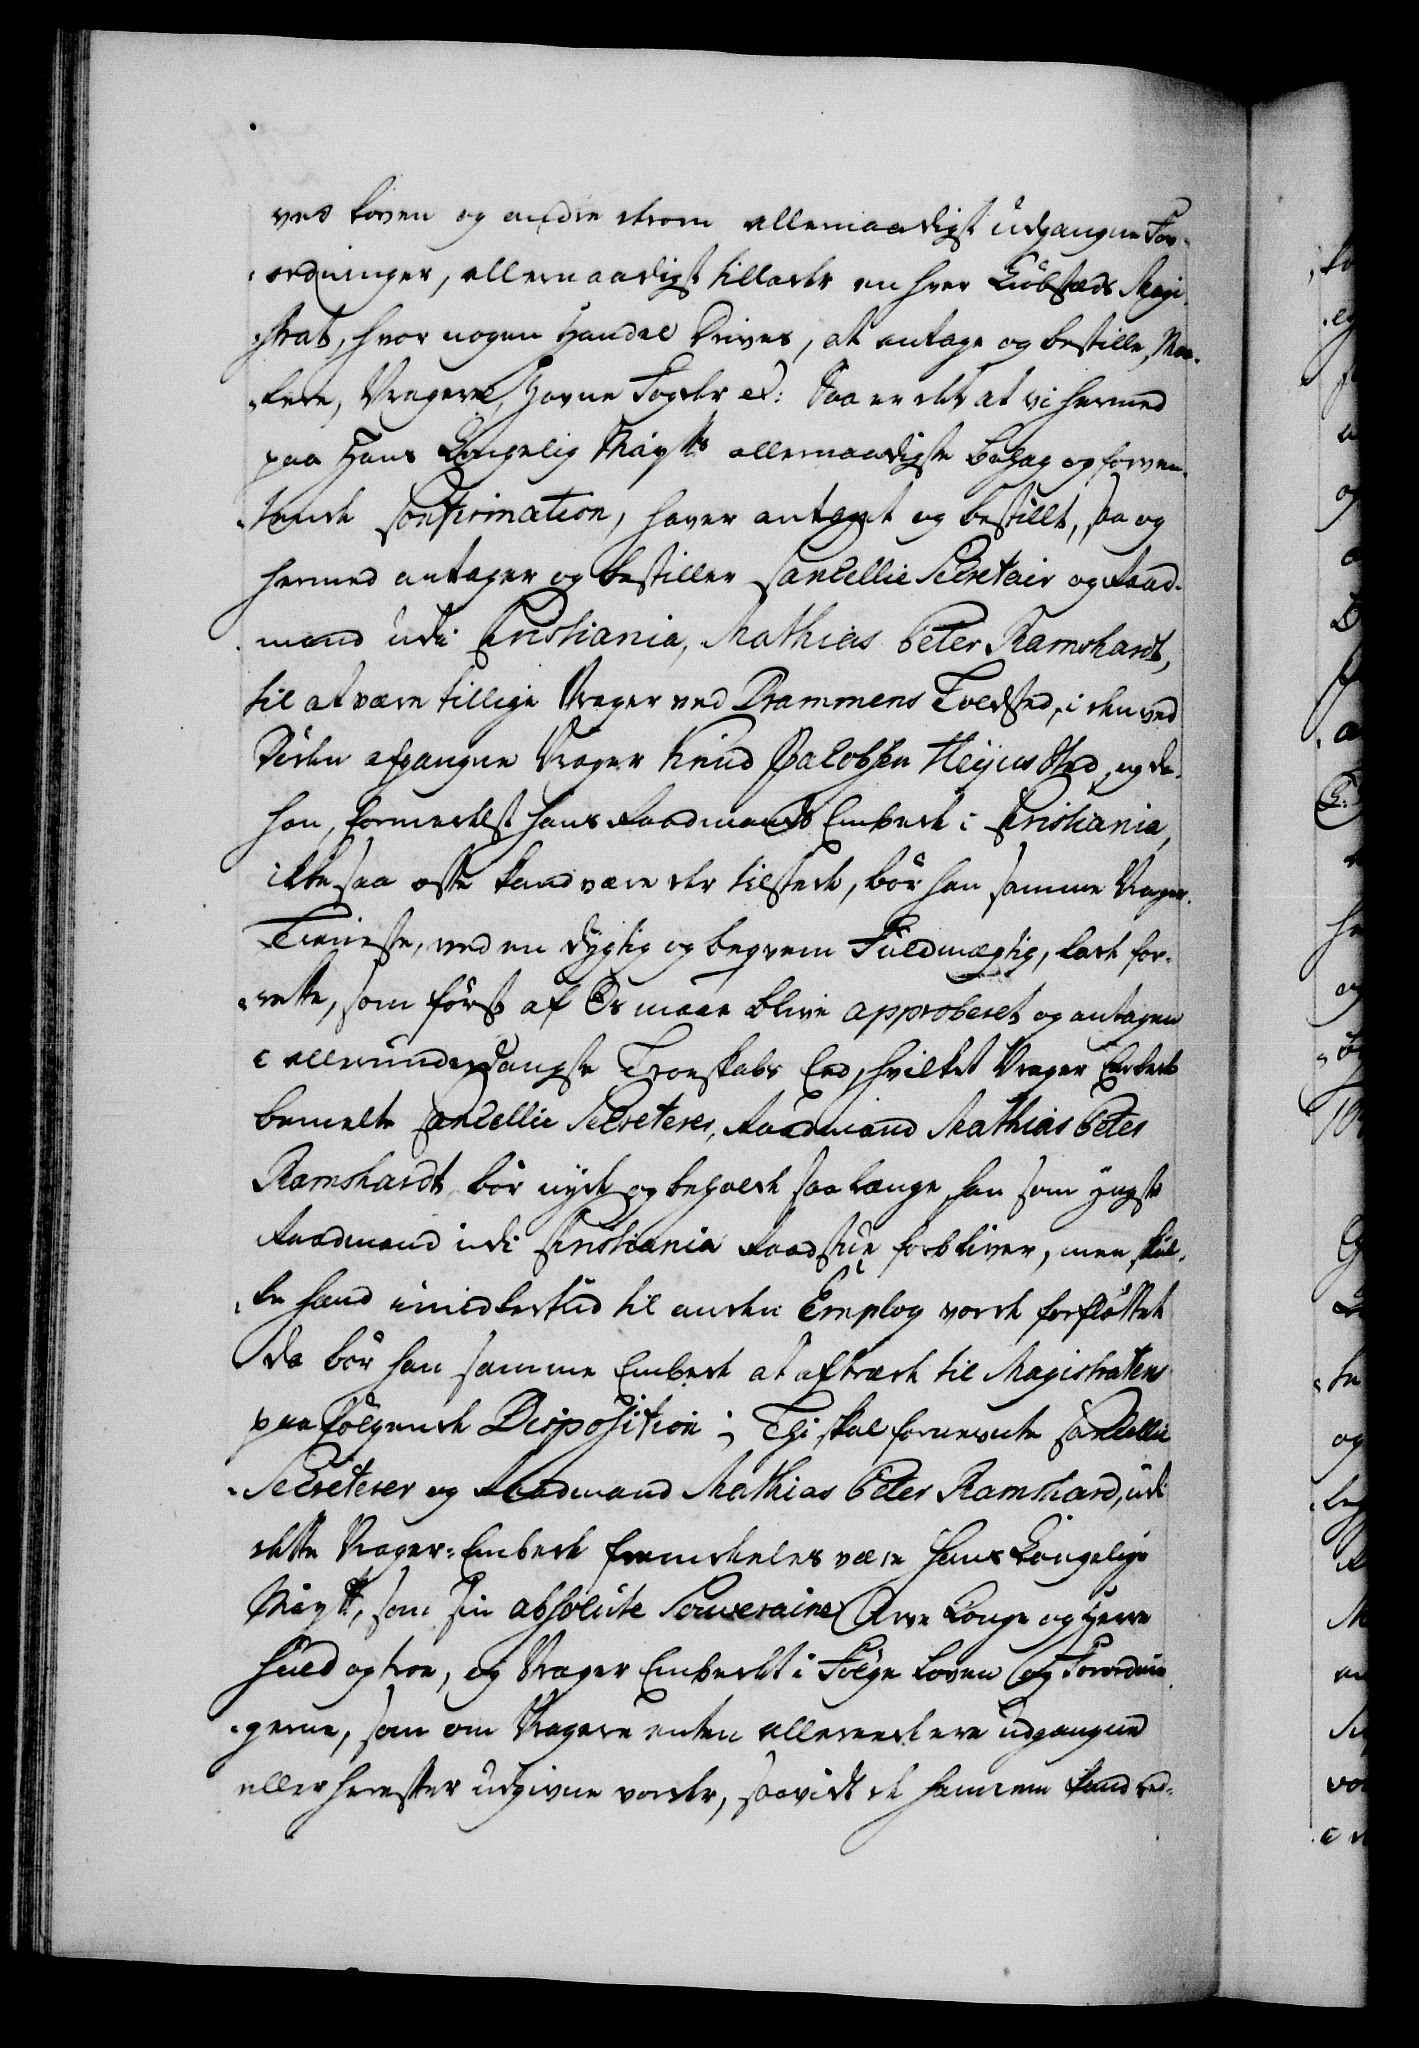 ved Loven og andre derom allernaadigst udgangne For-
ordninger, allernaadigst tilladt en hver Kiøbstæds Magi-
strat, hvor nogen Handel drives, at antage og bestille, Mæ-
klere, Vragere, Havne Fogder etc: Saa er det at vi hermed
paa Hans Kongelig Mayts allernaadigste behag og forven-
tende Confirmation, haver antaget og bestillt, saa og
hermed antager og bestiller Cancellie Secretair og Raad-
mand udi Christiania, Mathias Peter Ramshardt,
til at være tillige Vrager ved Drammens Toldsted, i den ved
Døden afgangne Vrager Knud Jacobsen Sted, og da
han, formedelst hans Raadmands Embede i Christiania,
ikke saa ofte kand være der tilstede, bør han samme Vrager
Tieneste, ved en dygtig og beqvem Fuldmægtig, lade for-
rette, som først af Os maae blive approberet og antagen
i allerunderdanigste Troeskabs Eed, hvilket Vrager Embede
bemelte Cancellie Secreterer, Raadmand Mathias Peter
Ramshardt bør nyde og beholde saa længe han som yngste
Raadmand udi Christiania Raadstue forbliver, men skul-
le hand imidlertiid til anden Employ vorde forfløttet
da bør han samme Embede at aftræde til Magistratens
paafølgende Disposition; Thi skal fornevnte Cancellie
Secreterer og Raadmand Mathias Peter Ramshard, udi
dette Vrager-Embede fremdeles være Hans Kongelige
Mayt, som sin absolute Souveraine Arve Konge og Herre
huld og troe, og Vrager Embedet i Følge Loven og Forordnin-
gerne, som om Vragere enten allereede ere udgangne
eller herefter udgivne vorder, saavidt de hannem kand ved-